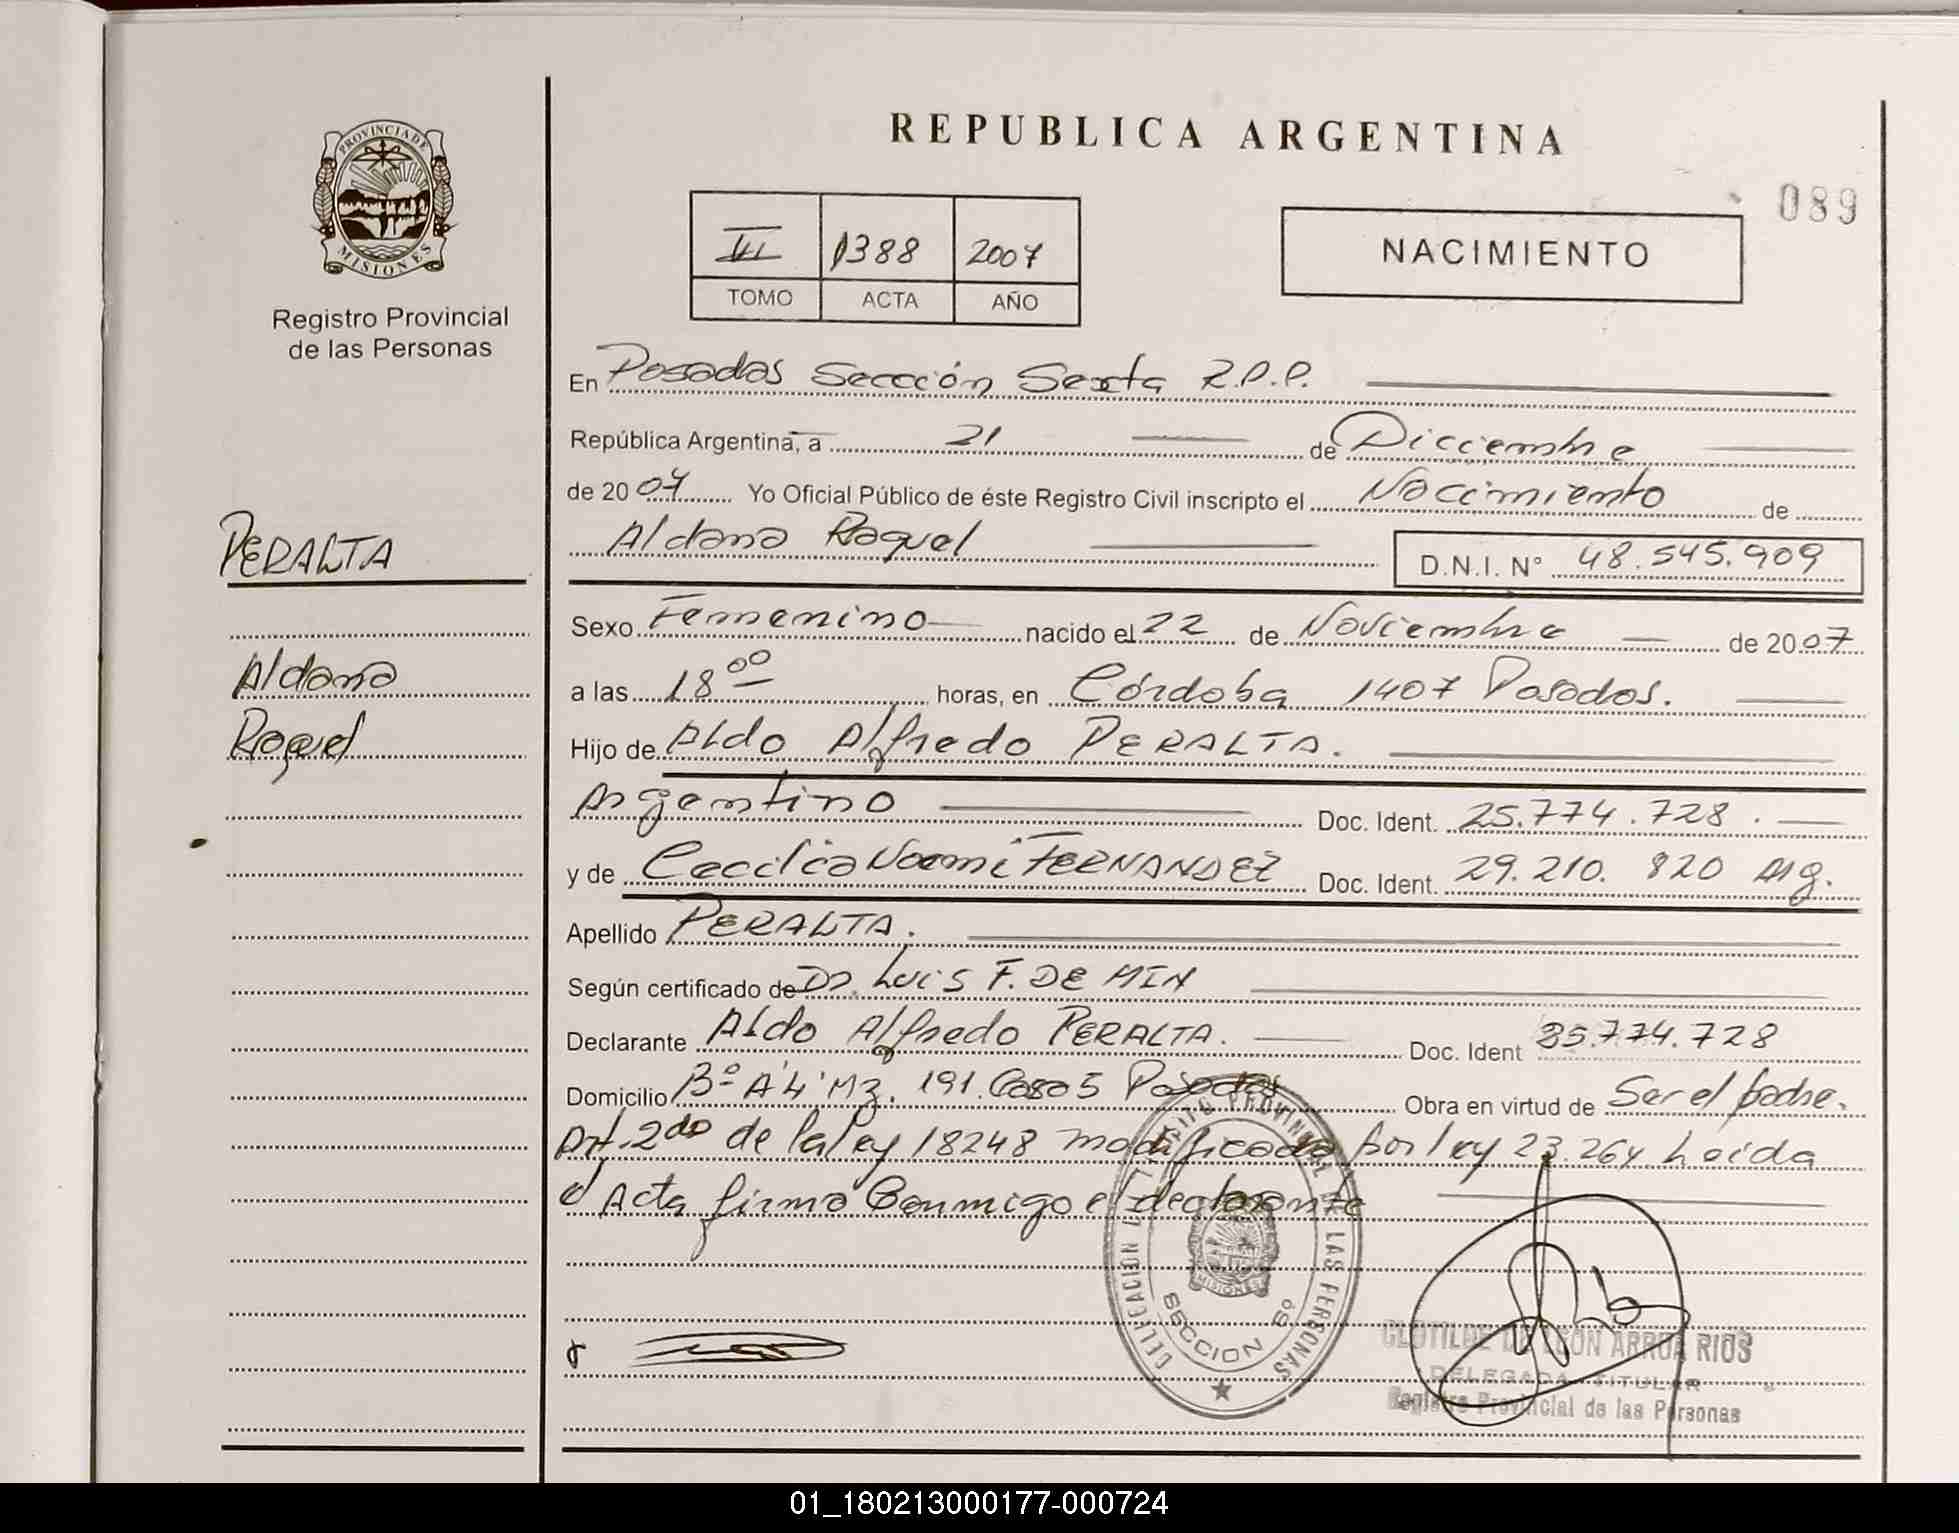 REPUBLICA ARGENTINA
089
PROVINCIA DE
MISIONES
Registro Provincial
de las Personas
III 1388 2007
TOMO ACTA AÑO
NACIMIENTO
En Posadas Sección Sexta R.P.P.
República Argentina, a 21 de Diciembre
de 2007 Yo Oficial Público de éste Registro Civil inscripto el Nacimiento de
Aldana Raquel
D.N.I. N° 48.545.909
PERALTA
Aldana
Raquel
Sexo Femenino nacido el 22 de Noviembre de 2007
a las 18 00 horas, en Córdoba 1407 Posadas.
Hijo de Aldo Alfredo PERALTA.
Argentino Doc. Ident. 25.774.728.
y de Cecilia Noemí FERNANDEZ Doc. Ident. 29.210.820 Arg.
Apellido PERALTA.
Según certificado de Dr. LUIS F. DE MIN
Declarante Aldo Alfredo PERALTA. Doc. Ident 25.774.728
Domicilio Bº A'4' Mz. 191. Casa 5 Posadas Obra en virtud de Ser el padre.
Art. 2do de la ley 18248 modificada por ley 23.264 Leida
el Acta firma Conmigo el declarante
DELEGACION REGISTRO PROVINCIAL DE LAS PERSONAS
MISIONES
SECCION 6º
CLOTILDE DE LEÓN ARRUA RIOS
DELEGADA TITULAR
Registro Provincial de las Personas
01_180213000177-000724